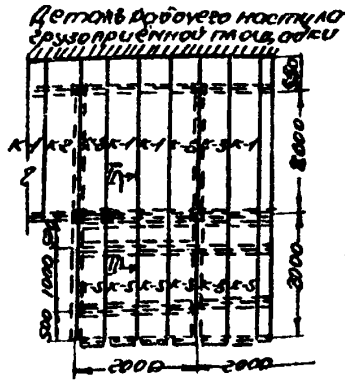 Деталь рабочего настила
грузоприёмной площадки
К-1 К-2 К-3 К-1 К-1 К-5 К-3 К-1
8000
2000
1000
500
К-5 К-5 К-5 К-5
2000 2000